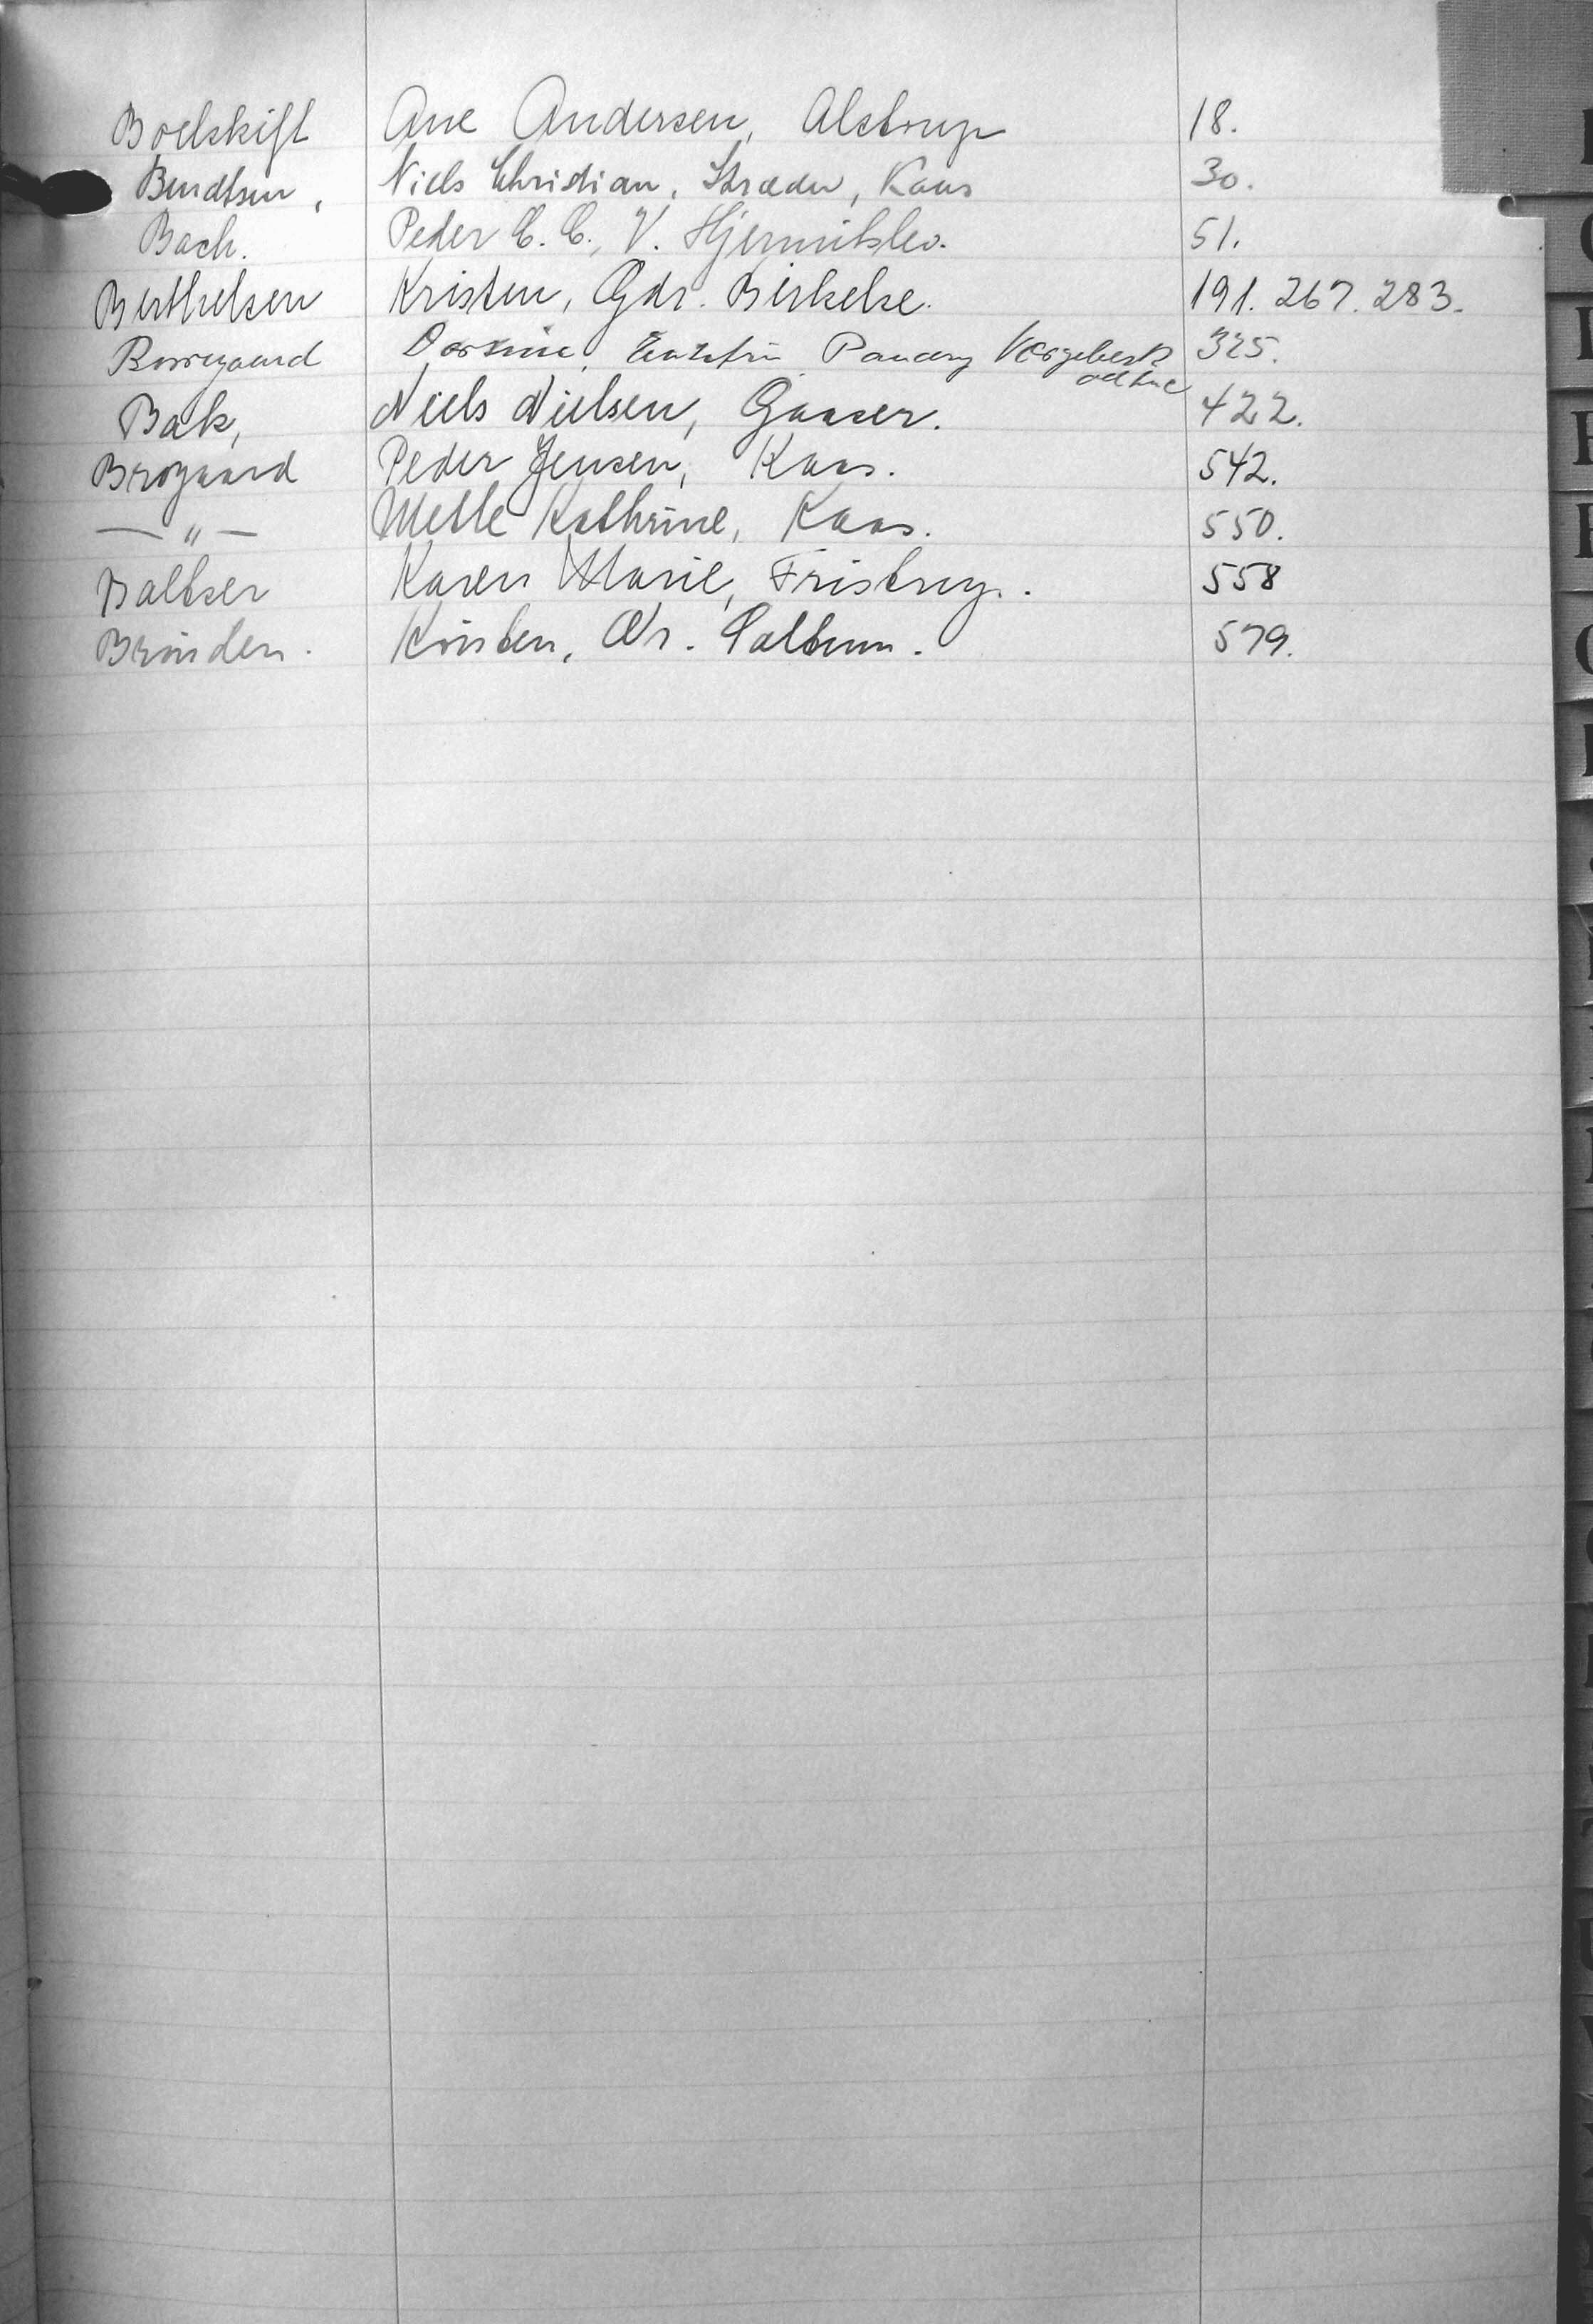 Boelskift Ane Andersen, Alstrup 18.
Bendtsen, Niels Christian, Stræde, Kaas 30.
Bach. Peder C. C., V. Hjermitslev. 51.
Berthelsen Kristen, Gdr. Birkelse. 191. 267. 283.
Borregaard Dorthine, Pandrup 325.
Bak, Niels Nielsen, Gaaser. 422.
Brogaard Peder Jensen, Kaas. 542.
— " — Mette Kathrine, Kaas. 550.
Baltser Karen Marie, Fristrup. 558
Brinden. Kristen, Nr. Saltum. 579.